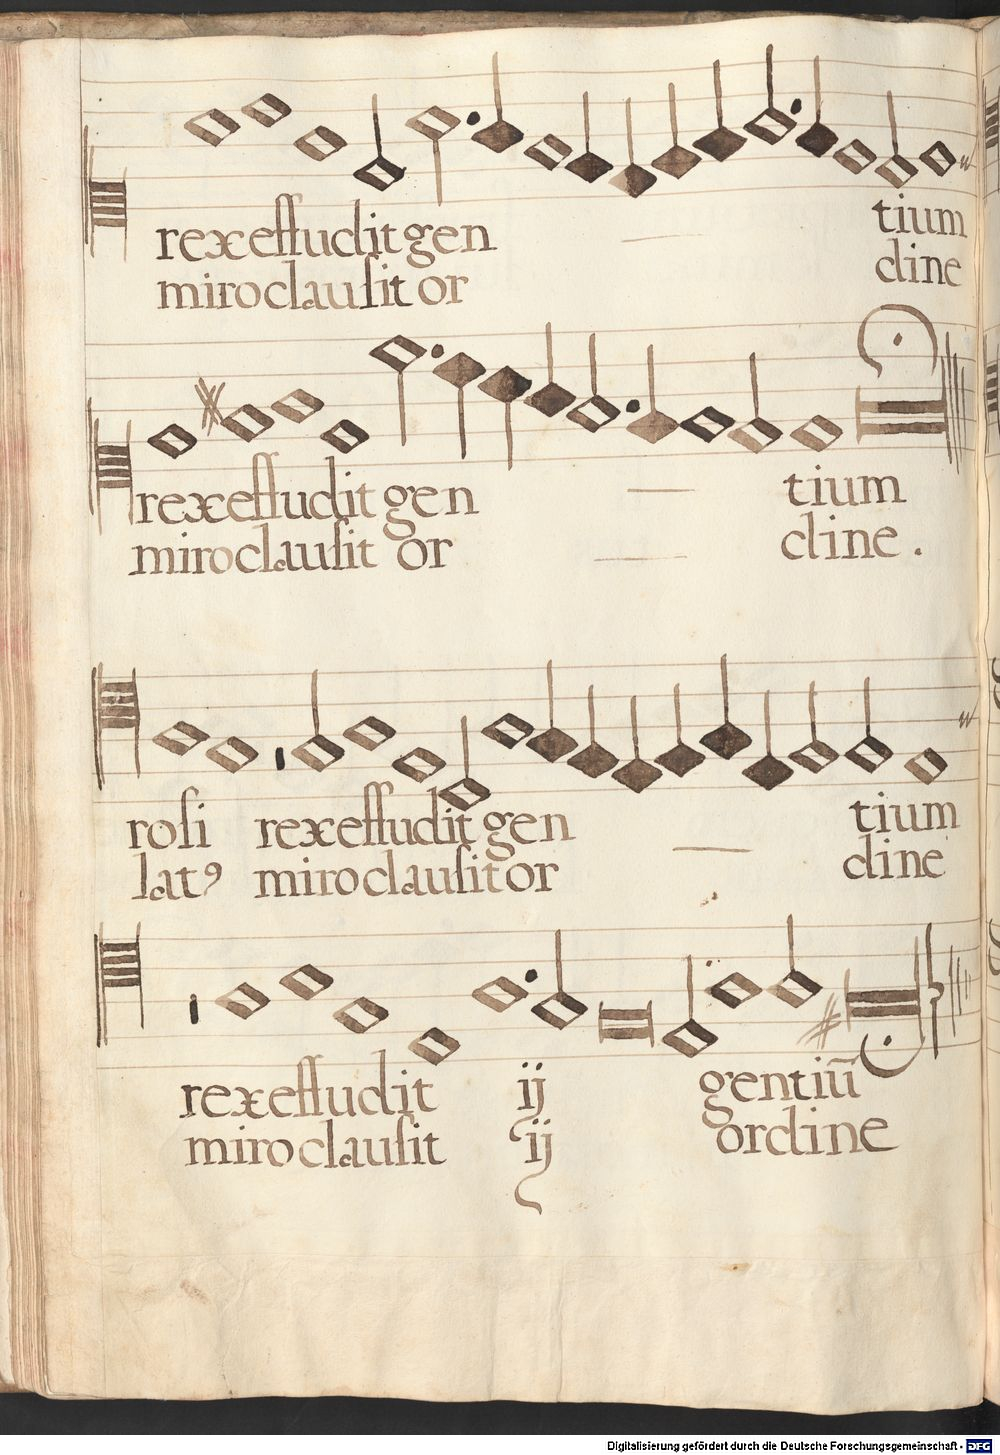 rex effudit gen — tium
miro clausit or dine
rex effudit gen — tium
miro clausit or — dine.
rosi rex effudit gen — tium
latꝰ miro clausit or dine
rex effudit ij gentiū
miro clausit ij ordine
Digitalisierung gefördert durch die Deutsche Forschungsgemeinschaft - DFG